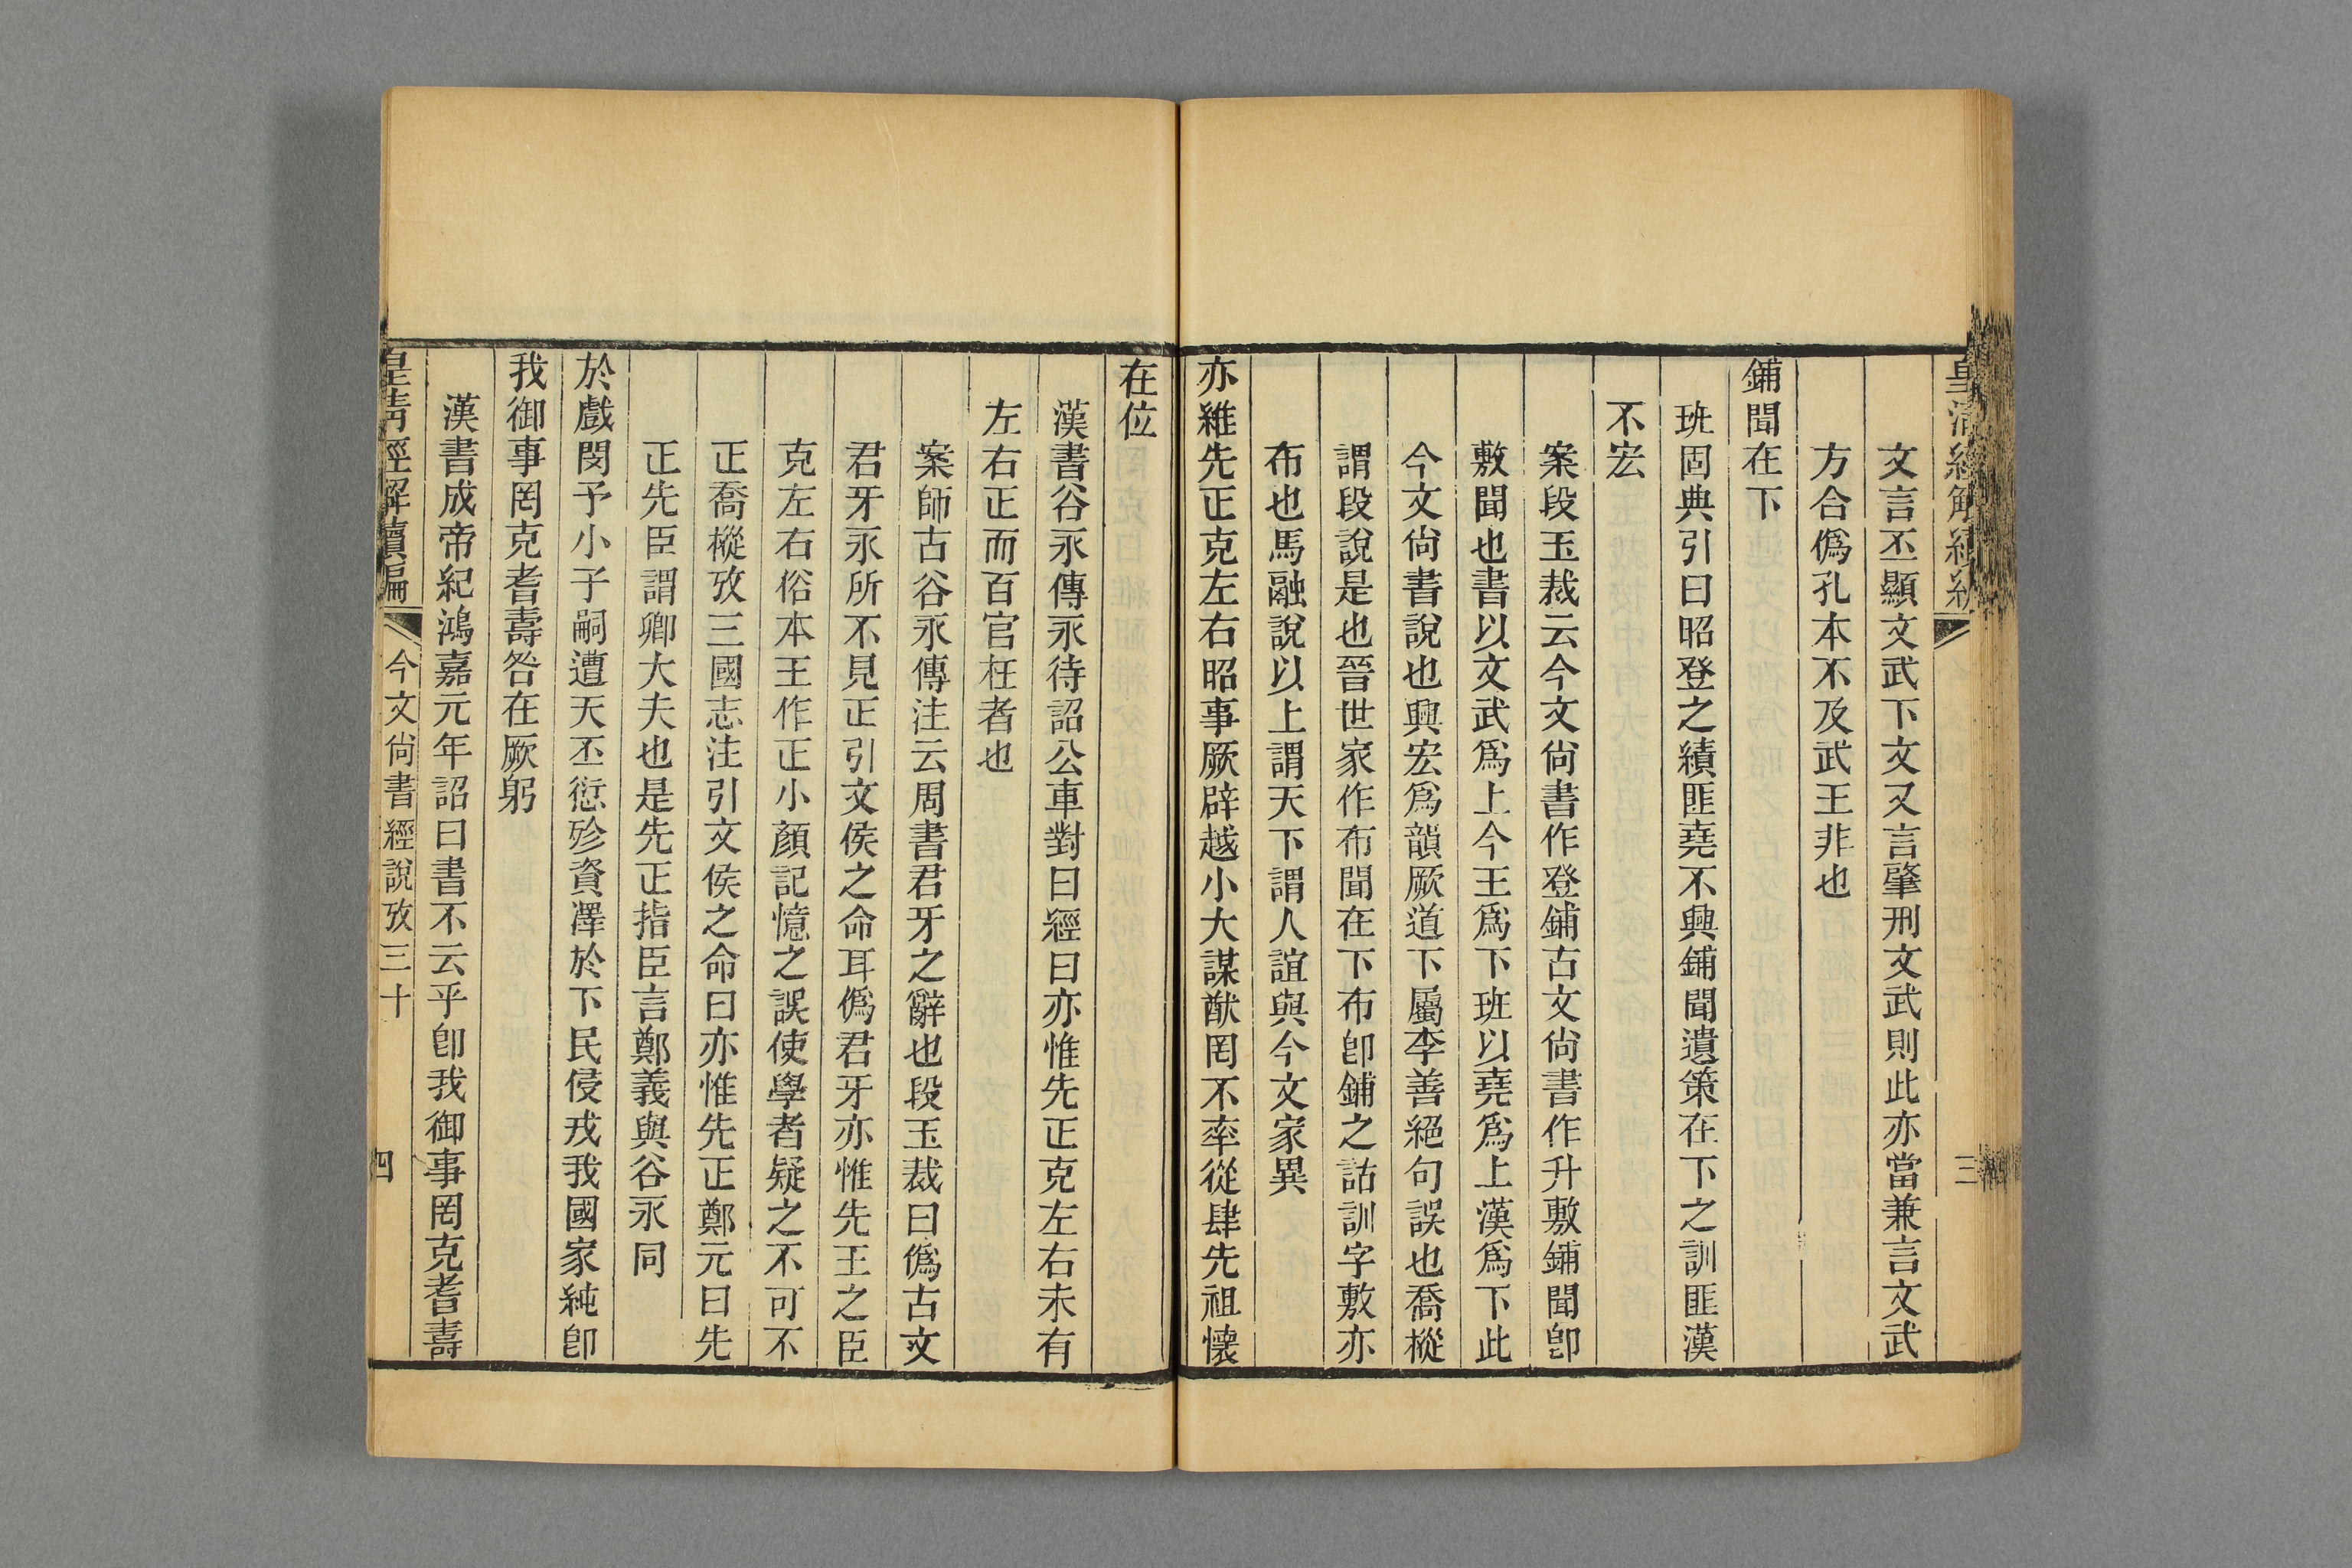 皇清經解續編
三
文言丕顯文武下文又言肇刑文武則此亦當兼言文武
方合僞孔本不及武王非也
鋪聞在下
班固典引曰昭登之績匪堯不興鋪聞遺策在下之訓匪漢
不宏
案段玉裁云今文尙書作登鋪古文尙書作升敷鋪聞卽
敷聞也書以文武爲上今王爲下班以堯爲上漢爲下此
今文尙書說也興宏爲韻厥道下屬李善絕句誤也喬樅
謂段說是也晉世家作布聞在下布卽鋪之詁訓字敷亦
布也馬融說以上謂天下謂人誼與今文家異
亦維先正克左右昭事厥辟越小大謀猷罔不率從肆先祖懷
在位
漢書谷永傳永待詔公車對曰經曰亦惟先正克左右未有
左右正而百官枉者也
案師古谷永傳注云周書君牙之辭也段玉裁曰僞古文
君牙永所不見正引文侯之命耳僞君牙亦惟先王之臣
克左右俗本王作正小顏記憶之誤使學者疑之不可不
正喬樅攷三國志注引文侯之命曰亦惟先正鄭元曰先
正先臣謂卿大夫也是先正指臣言鄭義與谷永同
於戲閔予小子嗣遭天丕愆殄資澤於下民侵戎我國家純卽
我御事罔克耆壽咎在厥躬
漢書成帝紀鴻嘉元年詔曰書不云乎卽我御事罔克耆壽
皇清經解續編
今文尙書經說攷三十
四